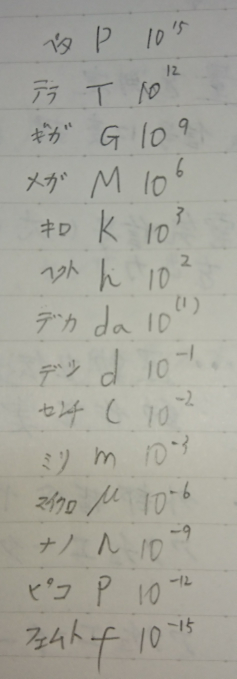 ペタ P 10¹⁵
テラ T 10¹²
ギガ G 10⁹
メガ M 10⁶
キロ K 10³
ヘクト h 10²
デカ da 10⁽¹⁾
デシ d 10⁻¹
センチ C 10⁻²
ミリ m 10⁻³
マイクロ μ 10⁻⁶
ナノ n 10⁻⁹
ピコ P 10⁻¹²
フェムト f 10⁻¹⁵